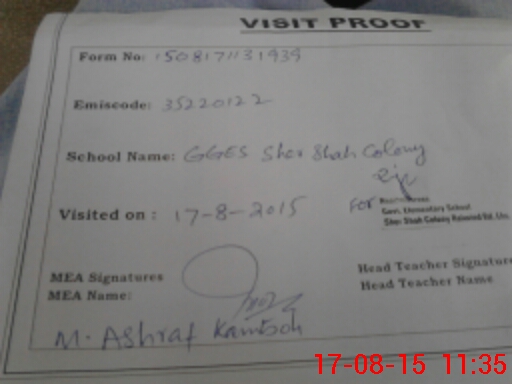 VISIT PROOF
Form No: 1508171131939
Emiscode: 35220122
School Name: GGES Sher Shah Colony
For
Govt. Elementary School
Sher Shah Colony Raiwind Rd. Lhr.
Visited on : 17-8-2015
MEA Signatures
Head Teacher Signature
MEA Name:
Head Teacher Name
M. Ashraf
17-08-15 11:35